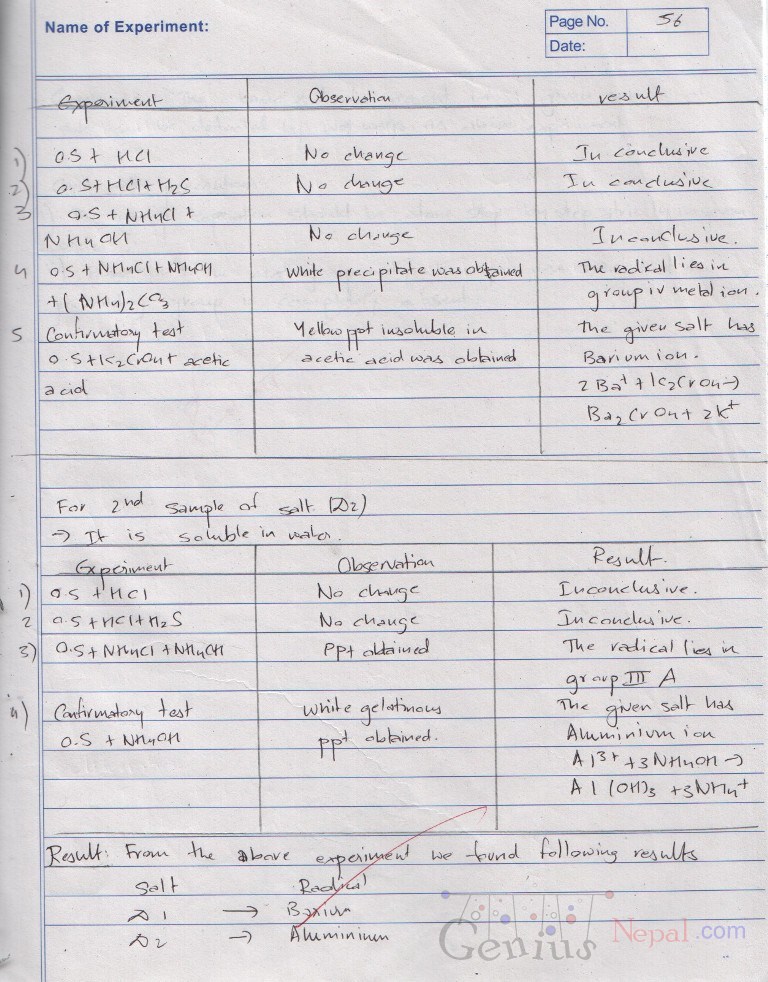 Name of Experiment:
Page No. 56
Date:
Experiment Observation result
1) O.S + HCl No change In conclusive
2) O.S+HCl+H2S No change In conclusive
3 O.S + NH4Cl +
NH4OH No change Inconclusive.
4 O.S + NH4Cl + NH4OH White precipitate was obtained The radical lies in
+(NH4)2CO3 group iv metal ion.
5 Confirmatory test Yellow ppt insoluble in the given salt has
O.S+K2CrO4+ acetic acetic acid was obtained Barium ion.
acid 2 Ba+ + K2CrO4→
Ba2CrO4+ 2K+
For 2nd sample of salt (D2)
→ It is soluble in water.
Experiment Observation Result.
1) O.S + HCl No change Inconclusive.
2 O.S + HCl+H2S No change Inconclusive.
3) O.S + NH4Cl + NH4OH Ppt obtained The radical lies in
group III A
4) Confirmatory test White gelatinous The given salt has
O.S + NH4OH ppt obtained. Aluminium ion
Al3+ +3NH4OH →
Al(OH)3 +3NH4+
Result: From the above experiment we found following results
Salt Radical
D1 → Barium
D2 → Aluminium
Genius Nepal.com